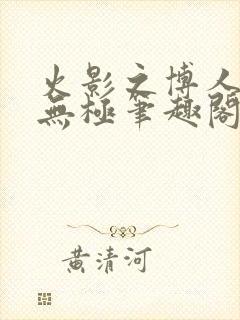 火影之博人
無極筆趣閣
黃清河